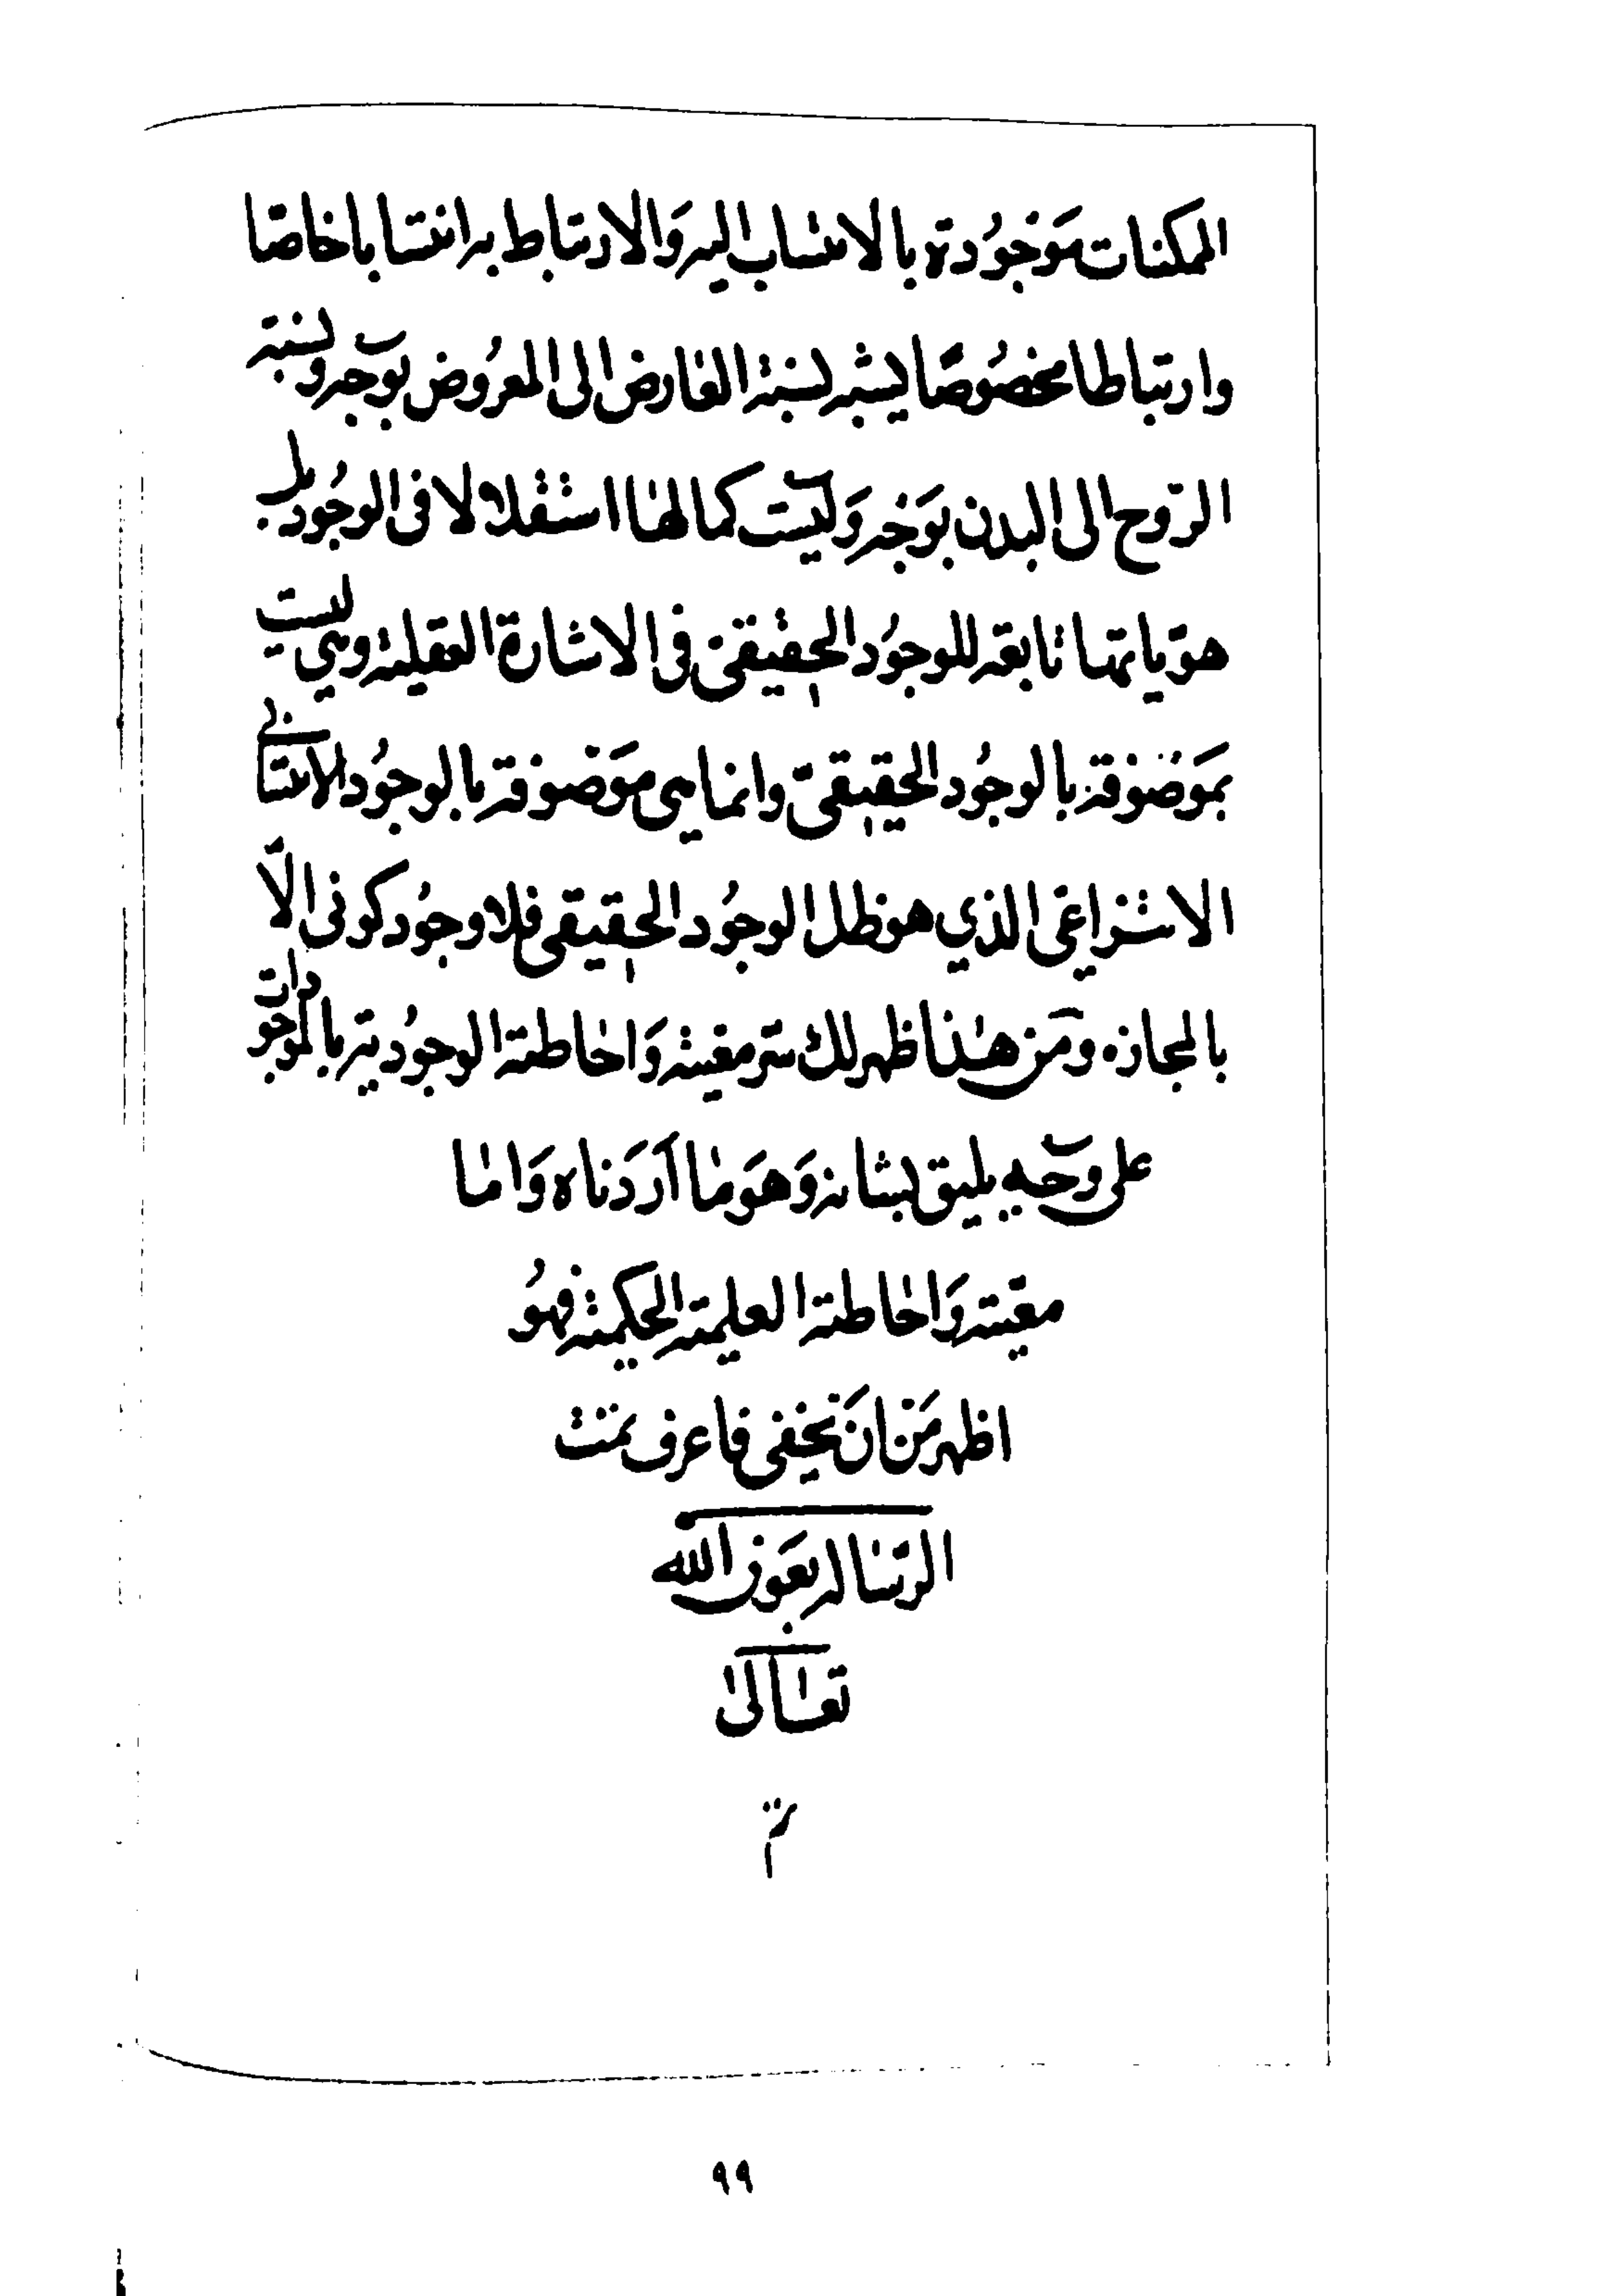 الممكنات موجودة بالانتساب اليه والارتباط به انتسابا خاصا
وارتباطا مخصوصا يشبه نسبة العارض الى المعروض بوجه ونسبة
الروح الى البدن بوجه وليست كمالها استقلالا فى الوجود بل
هوياتها تابعة للوجود الحقيقى فى الاشارة العقلية وهي ليست
بموصوفة بالوجود الحقيقى وانما هي موصوفة بالوجود الانتسابي
الانتزاعى الذي هو ظل الوجود الحقيقى فلا وجود كونى الّا
بالمجازه ومن هذا ظهر لك سر معيته واحاطته الوجودية بالموجودات
على وجه يليق بشانه وهو ما أردناه واما
معيته واحاطته العلمية الحكمية فهو
اظهر من ان يخفى فاعرف تمت
الرسالة بعون الله
تعالى
تم
٩٩